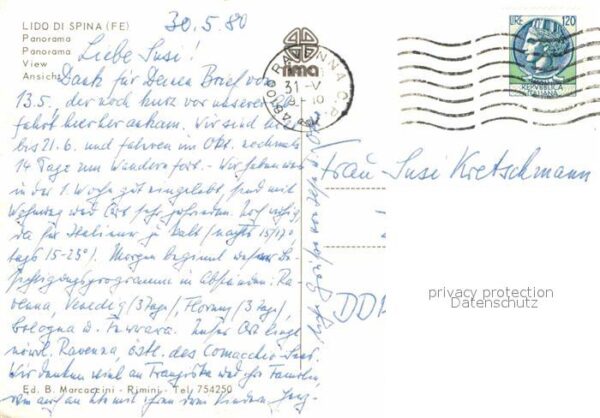 LIDO DI SPINA (FE)
Panorama
Panorama
View
Ansicht
30.5.80
Liebe Susi!
Dank für Deinen Brief vom
13.5., der noch kurz vor unserer Ab-
fahrt hierher ankam. Wir sind hier
bis 21.6. und fahren im Okt. nochmals
14 Tage zum Wandern fort. - Wir haben uns
in der 1. Woche gut eingelebt, sind mit
Wohnung und Ort sehr zufrieden. Noch ruhig
da für Italiener zu kalt (nachts 15/17°
tags 15-23°). Morgen beginnt unser Be-
sichtigungsprogramm in Abständen: Ra-
venna, Venedig (3 Tage), Florenz (3 Tage),
Bologna u. Ferrara. Unser Ort liegt
nördl. Ravenna, östl. des Comacchio-Sees.
Wir denken viel an
Ed. B. Marcaccini - Rimini - Tel 754250
RAVENNA C.P.
rima
31-V
LIRE 120
REPVBBLICA
ITALIANA
Frau Susi Kretschmann
DDR
privacy protection
Datenschutz